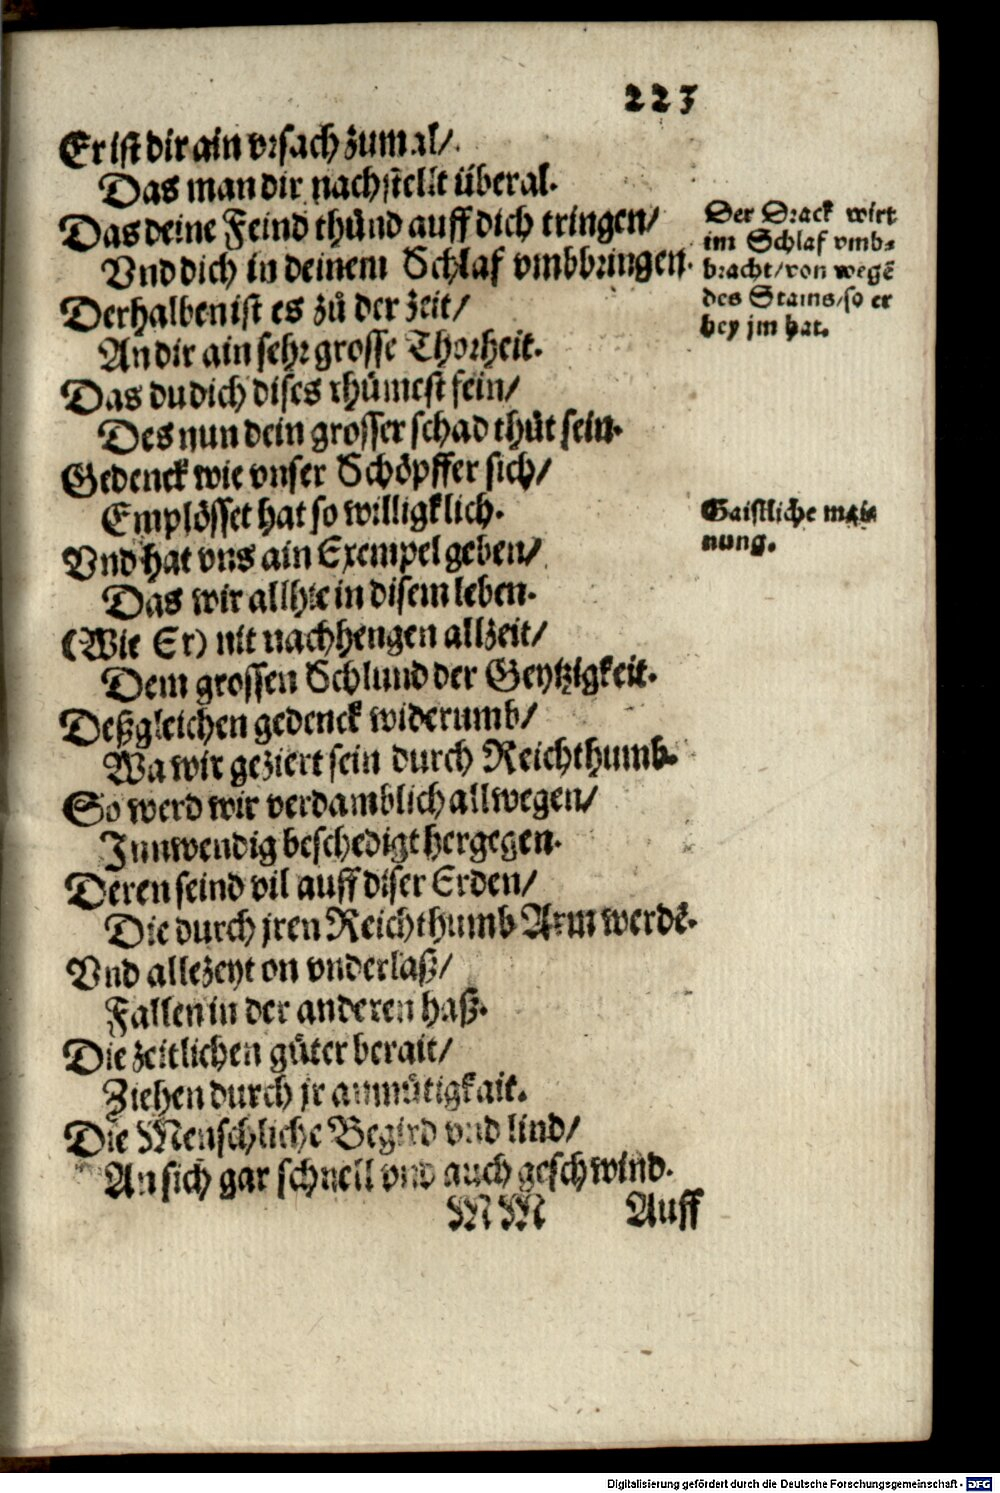 223
Er ist dir ain vrsach zumal/
Das man dir nachstellt überal.
Das deine Feind thünd auff dich tringen/
Vnd dich in deinem Schlaf vmbbringen.
Der Drack wirt
im Schlaf vmb-
bracht/von wegẽ
des Stains/so er
bey jm hat.
Derhalben ist es zů der zeit/
An dir ain sehr grosse Thorheit.
Das du dich dises rhümest fein/
Des nun dein grosser schad thůt sein.
Gedenck wie vnser Schöpffer sich/
Emplösset hat so willigklich.
Gaistliche mai-
nung.
Vnd hat vns ain Exempel geben/
Das wir allhie in disem leben.
(Wie Er) nit nachhengen allzeit/
Dem grossen Schlund der Geytzigkeit.
Deßgleichen gedenck widerumb/
Wa wir geziert sein durch Reichthumb.
So werd wir verdamblich allwegen/
Innwendig beschedigt hergegen.
Deren seind vil auff diser Erden/
Die durch jren Reichthumb Arm werdẽ.
Vnd allezeyt on vnderlaß/
Fallen in der anderen haß.
Die zeitlichen güter berait/
Ziehen durch jr anmütigkait.
Die Menschliche Begird vnd lind/
An sich gar schnell vnd auch geschwind.
MM Auff
Digitalisierung gefördert durch die Deutsche Forschungsgemeinschaft - DFG